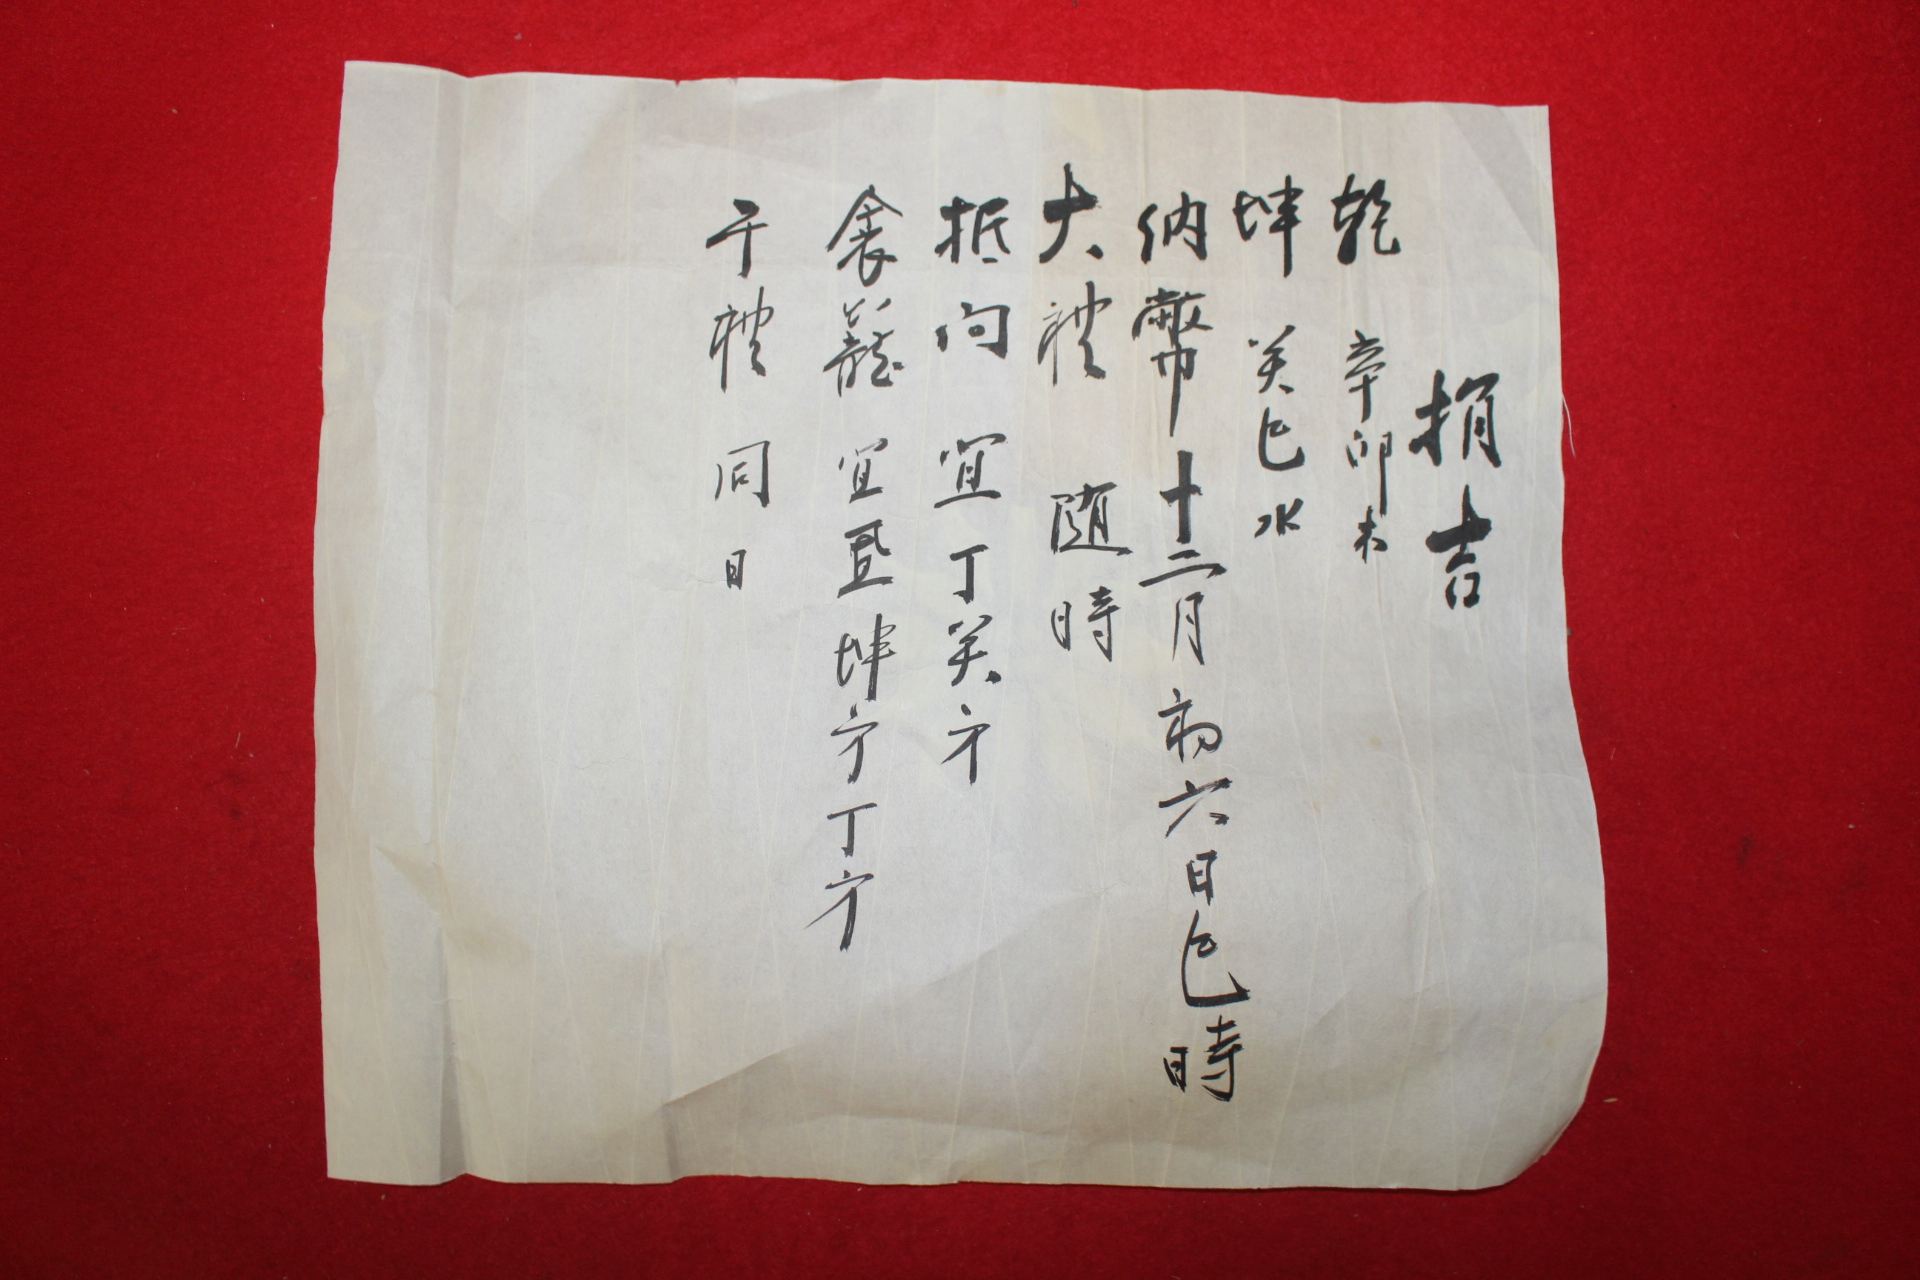 捐吉
乾 辛卯木
坤 癸巳水
納幣 十二月初六日巳時
大禮 隨時
抵向 宜丁癸方
奩籠 宜艮坤方丁方
于禮 同日